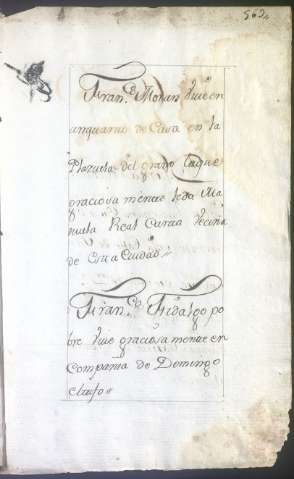 Fran.co Moran Vive en
un quarto de Casa en la
Plazuela del grano la que
graciosamente le da Ma
nuela Real Garcia Vecina
de esta Ciudad
Fran.co Hidalgo po
bre Vive graciosamente en
Compania de Domingo